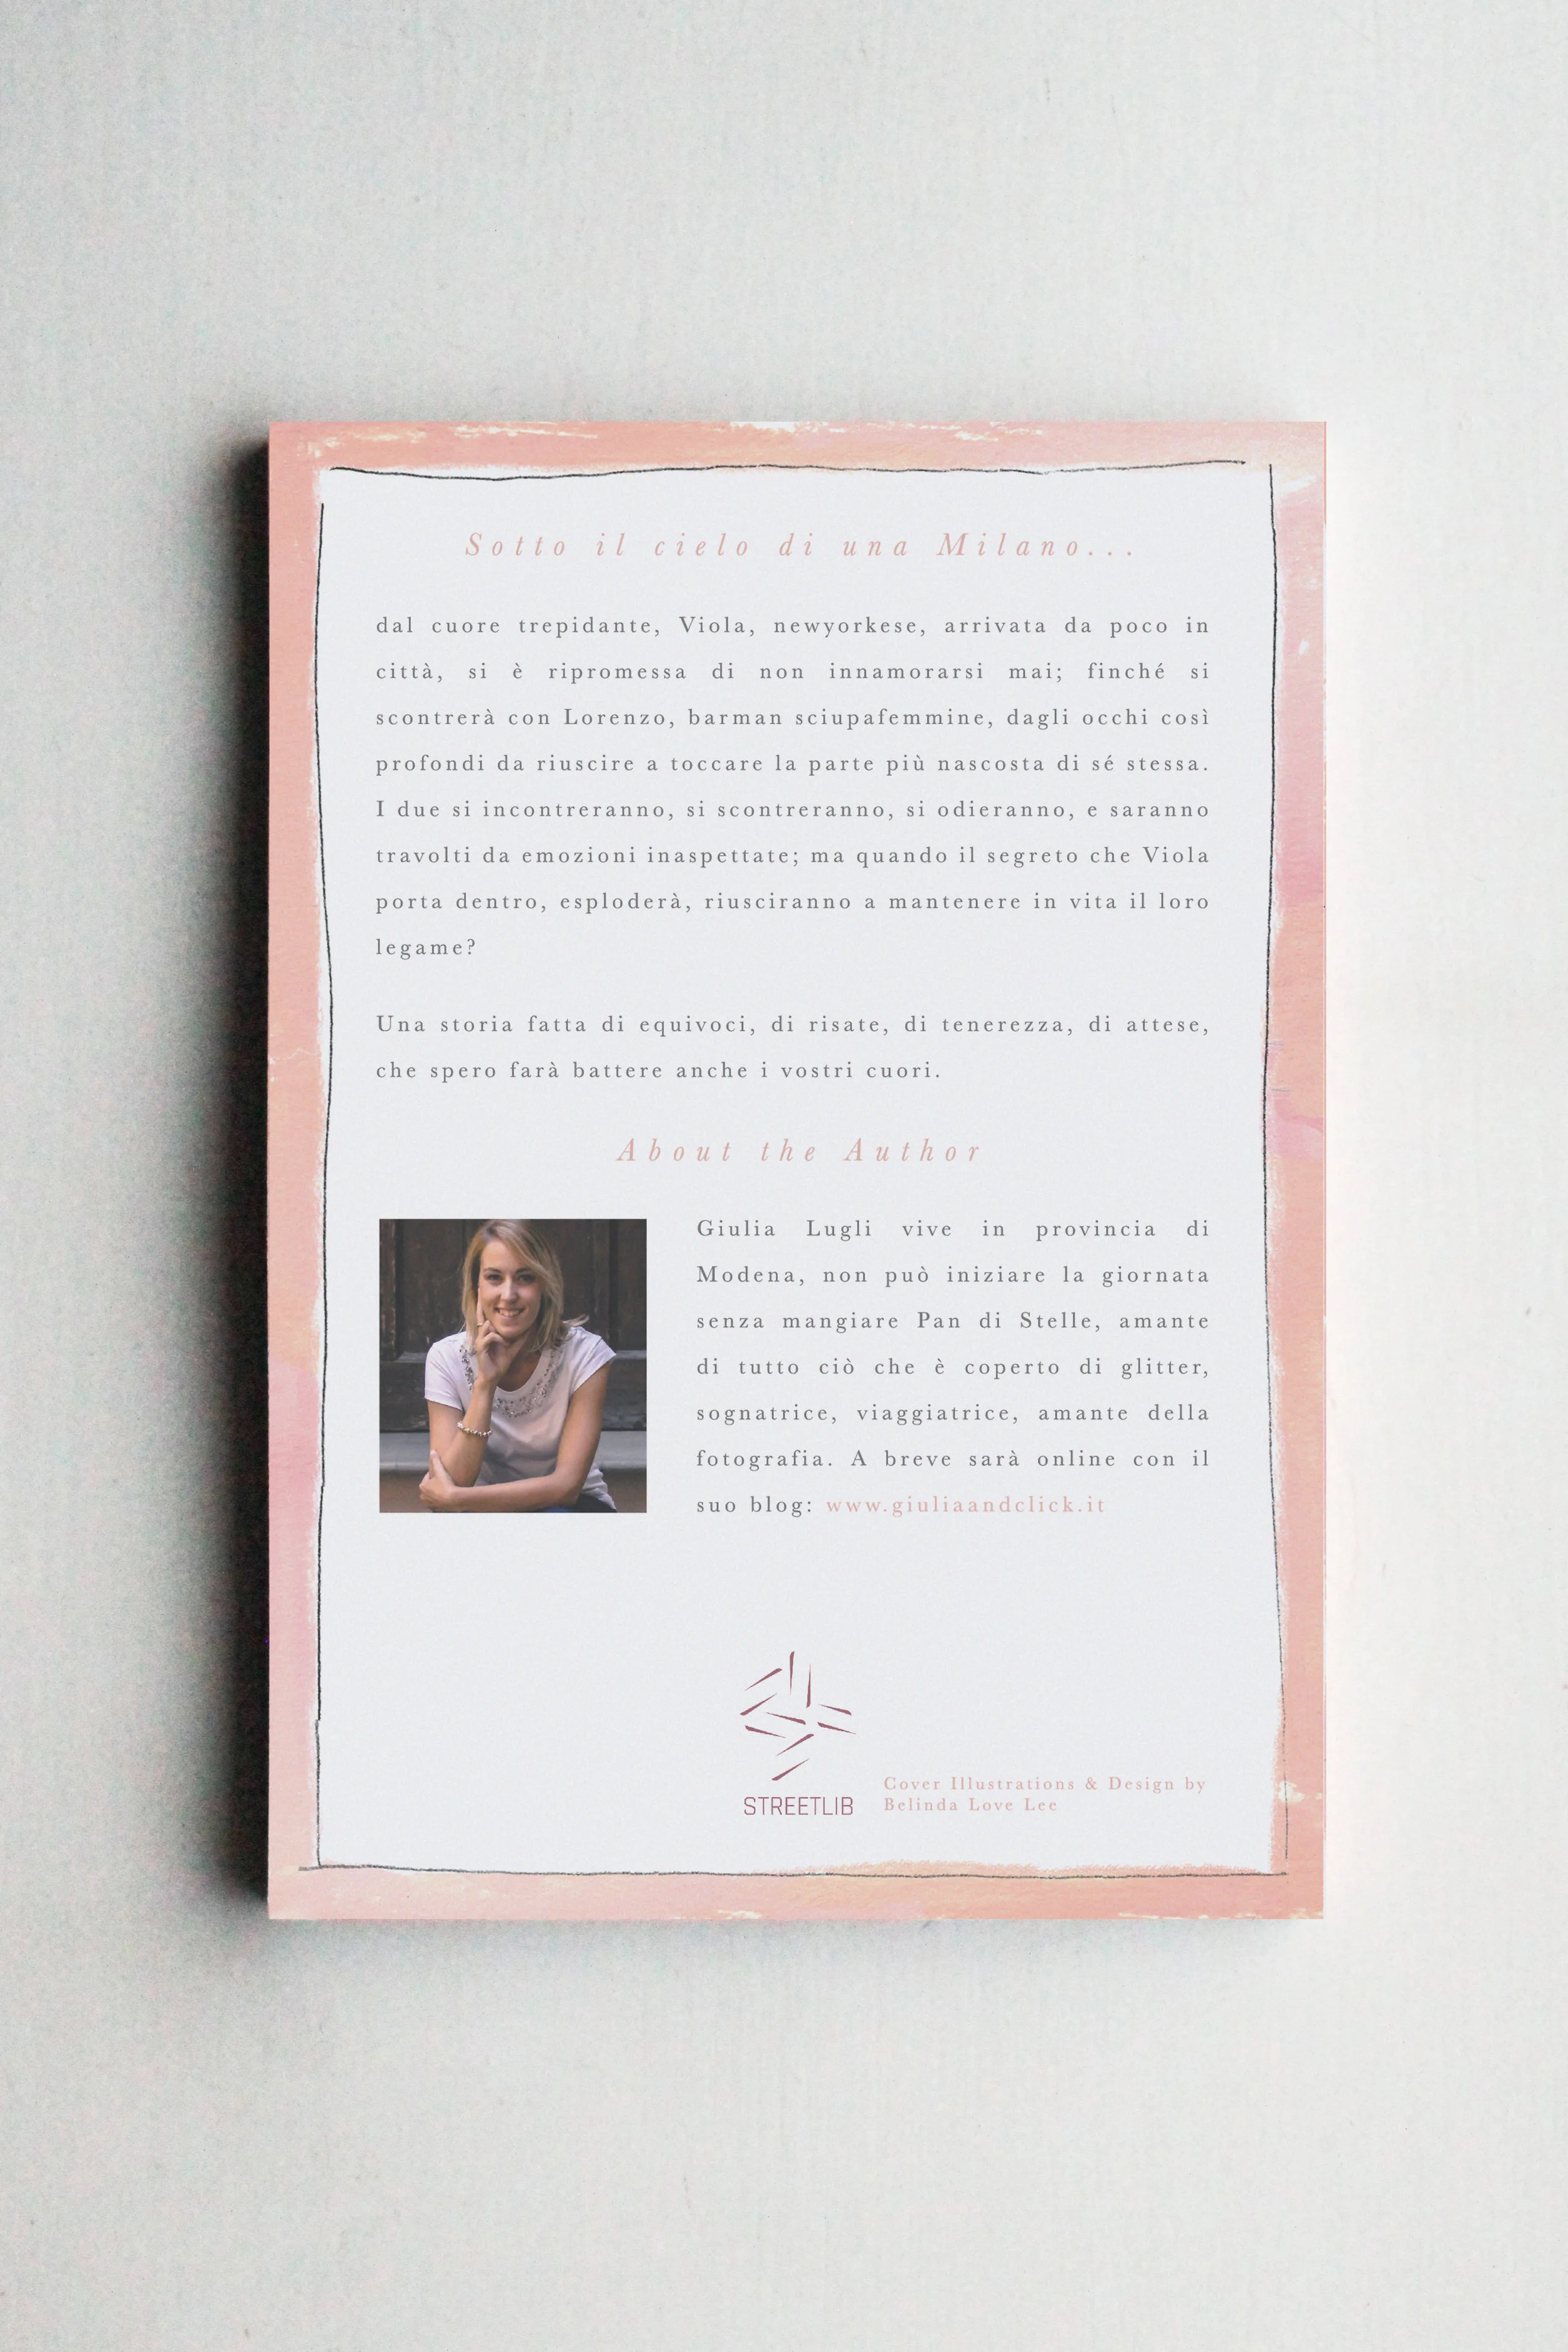 Sotto il cielo di una Milano...
dal cuore trepidante, Viola, newyorkese, arrivata da poco in
città, si è ripromessa di non innamorarsi mai; finché si
scontrerà con Lorenzo, barman sciupafemmine, dagli occhi così
profondi da riuscire a toccare la parte più nascosta di sé stessa.
I due si incontreranno, si scontreranno, si odieranno, e saranno
travolti da emozioni inaspettate; ma quando il segreto che Viola
porta dentro, esploderà, riusciranno a mantenere in vita il loro
legame?
Una storia fatta di equivoci, di risate, di tenerezza, di attese,
che spero farà battere anche i vostri cuori.
About the Author
Giulia Lugli vive in provincia di
Modena, non può iniziare la giornata
senza mangiare Pan di Stelle, amante
di tutto ciò che è coperto di glitter,
sognatrice, viaggiatrice, amante della
fotografia. A breve sarà online con il
suo blog: www.giuliaandclick.it
STREETLIB
Cover Illustrations & Design by
Belinda Love Lee